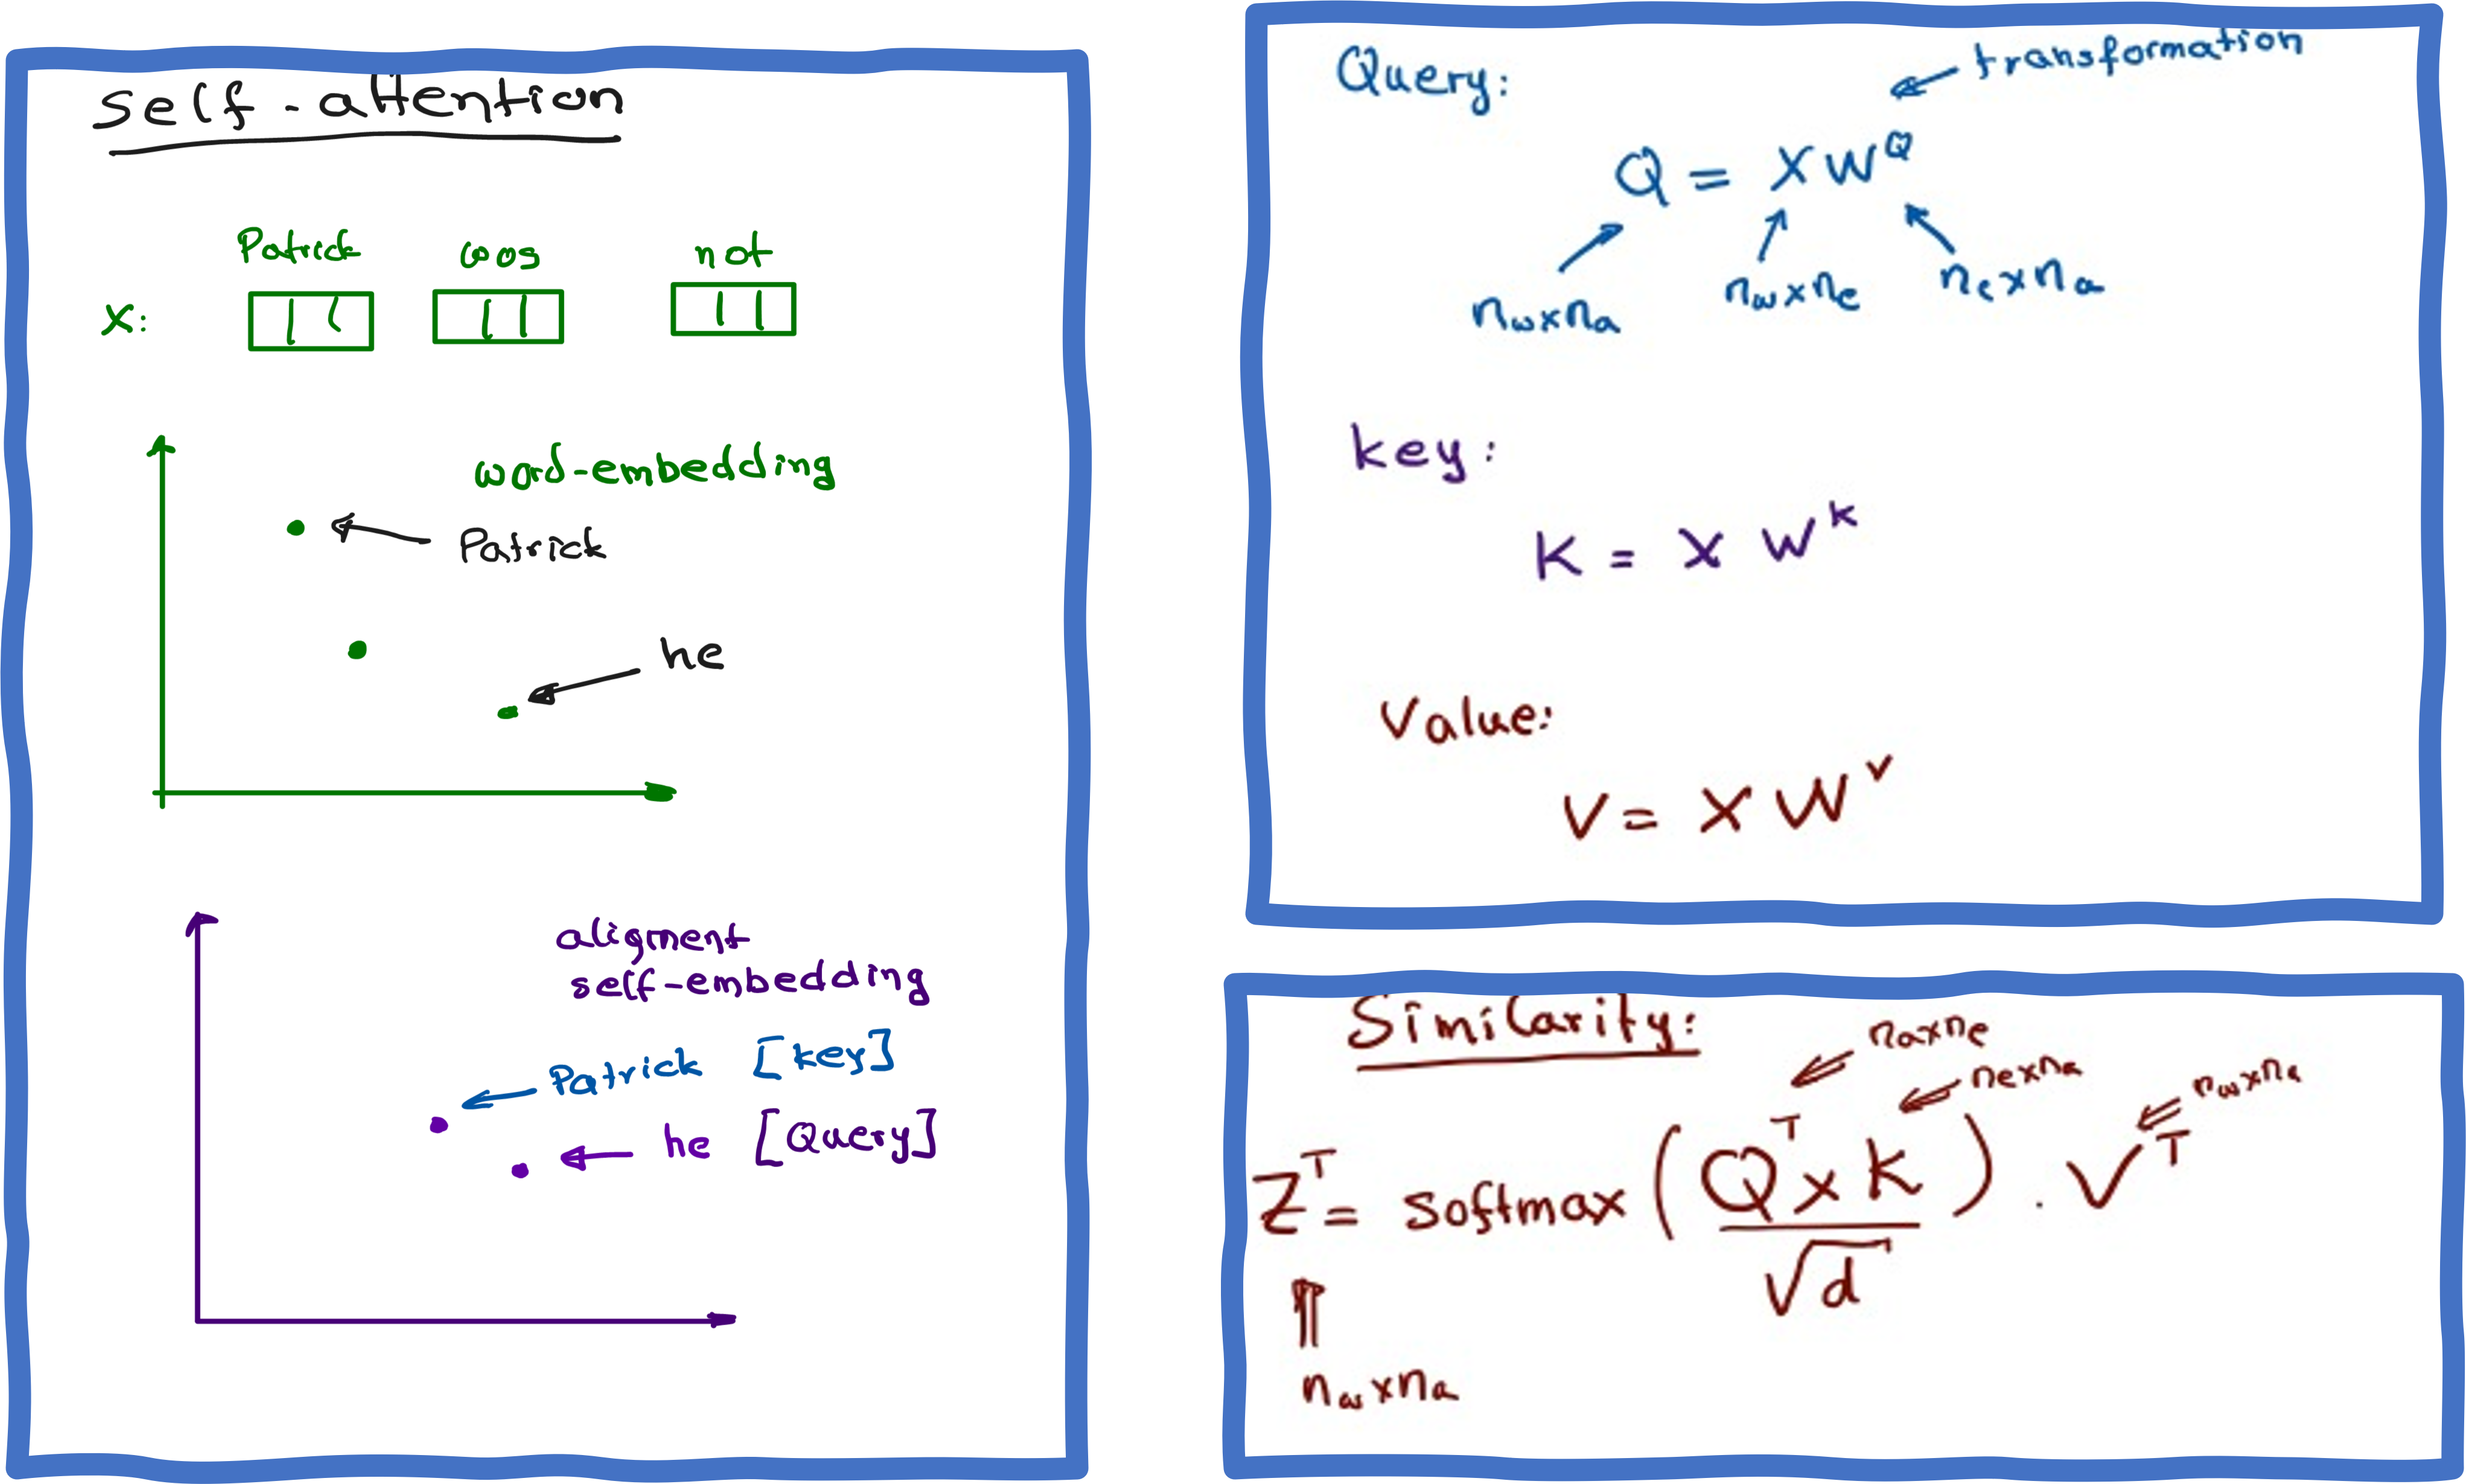 self-attention
Patrick was not
X:
word-embedding
Patrick
he
aligment
self-embedding
Patrick [key]
he [Query]
Query:
transformation
Q = X W^Q
n_w x n_a
n_w x n_e
n_e x n_a
key:
K = X W^K
Value:
V = X W^V
Similarity:
n_a x n_e
n_e x n_a
n_w x n_a
Z^T = softmax (Q^T x K / √d) . V^T
n_w x n_a